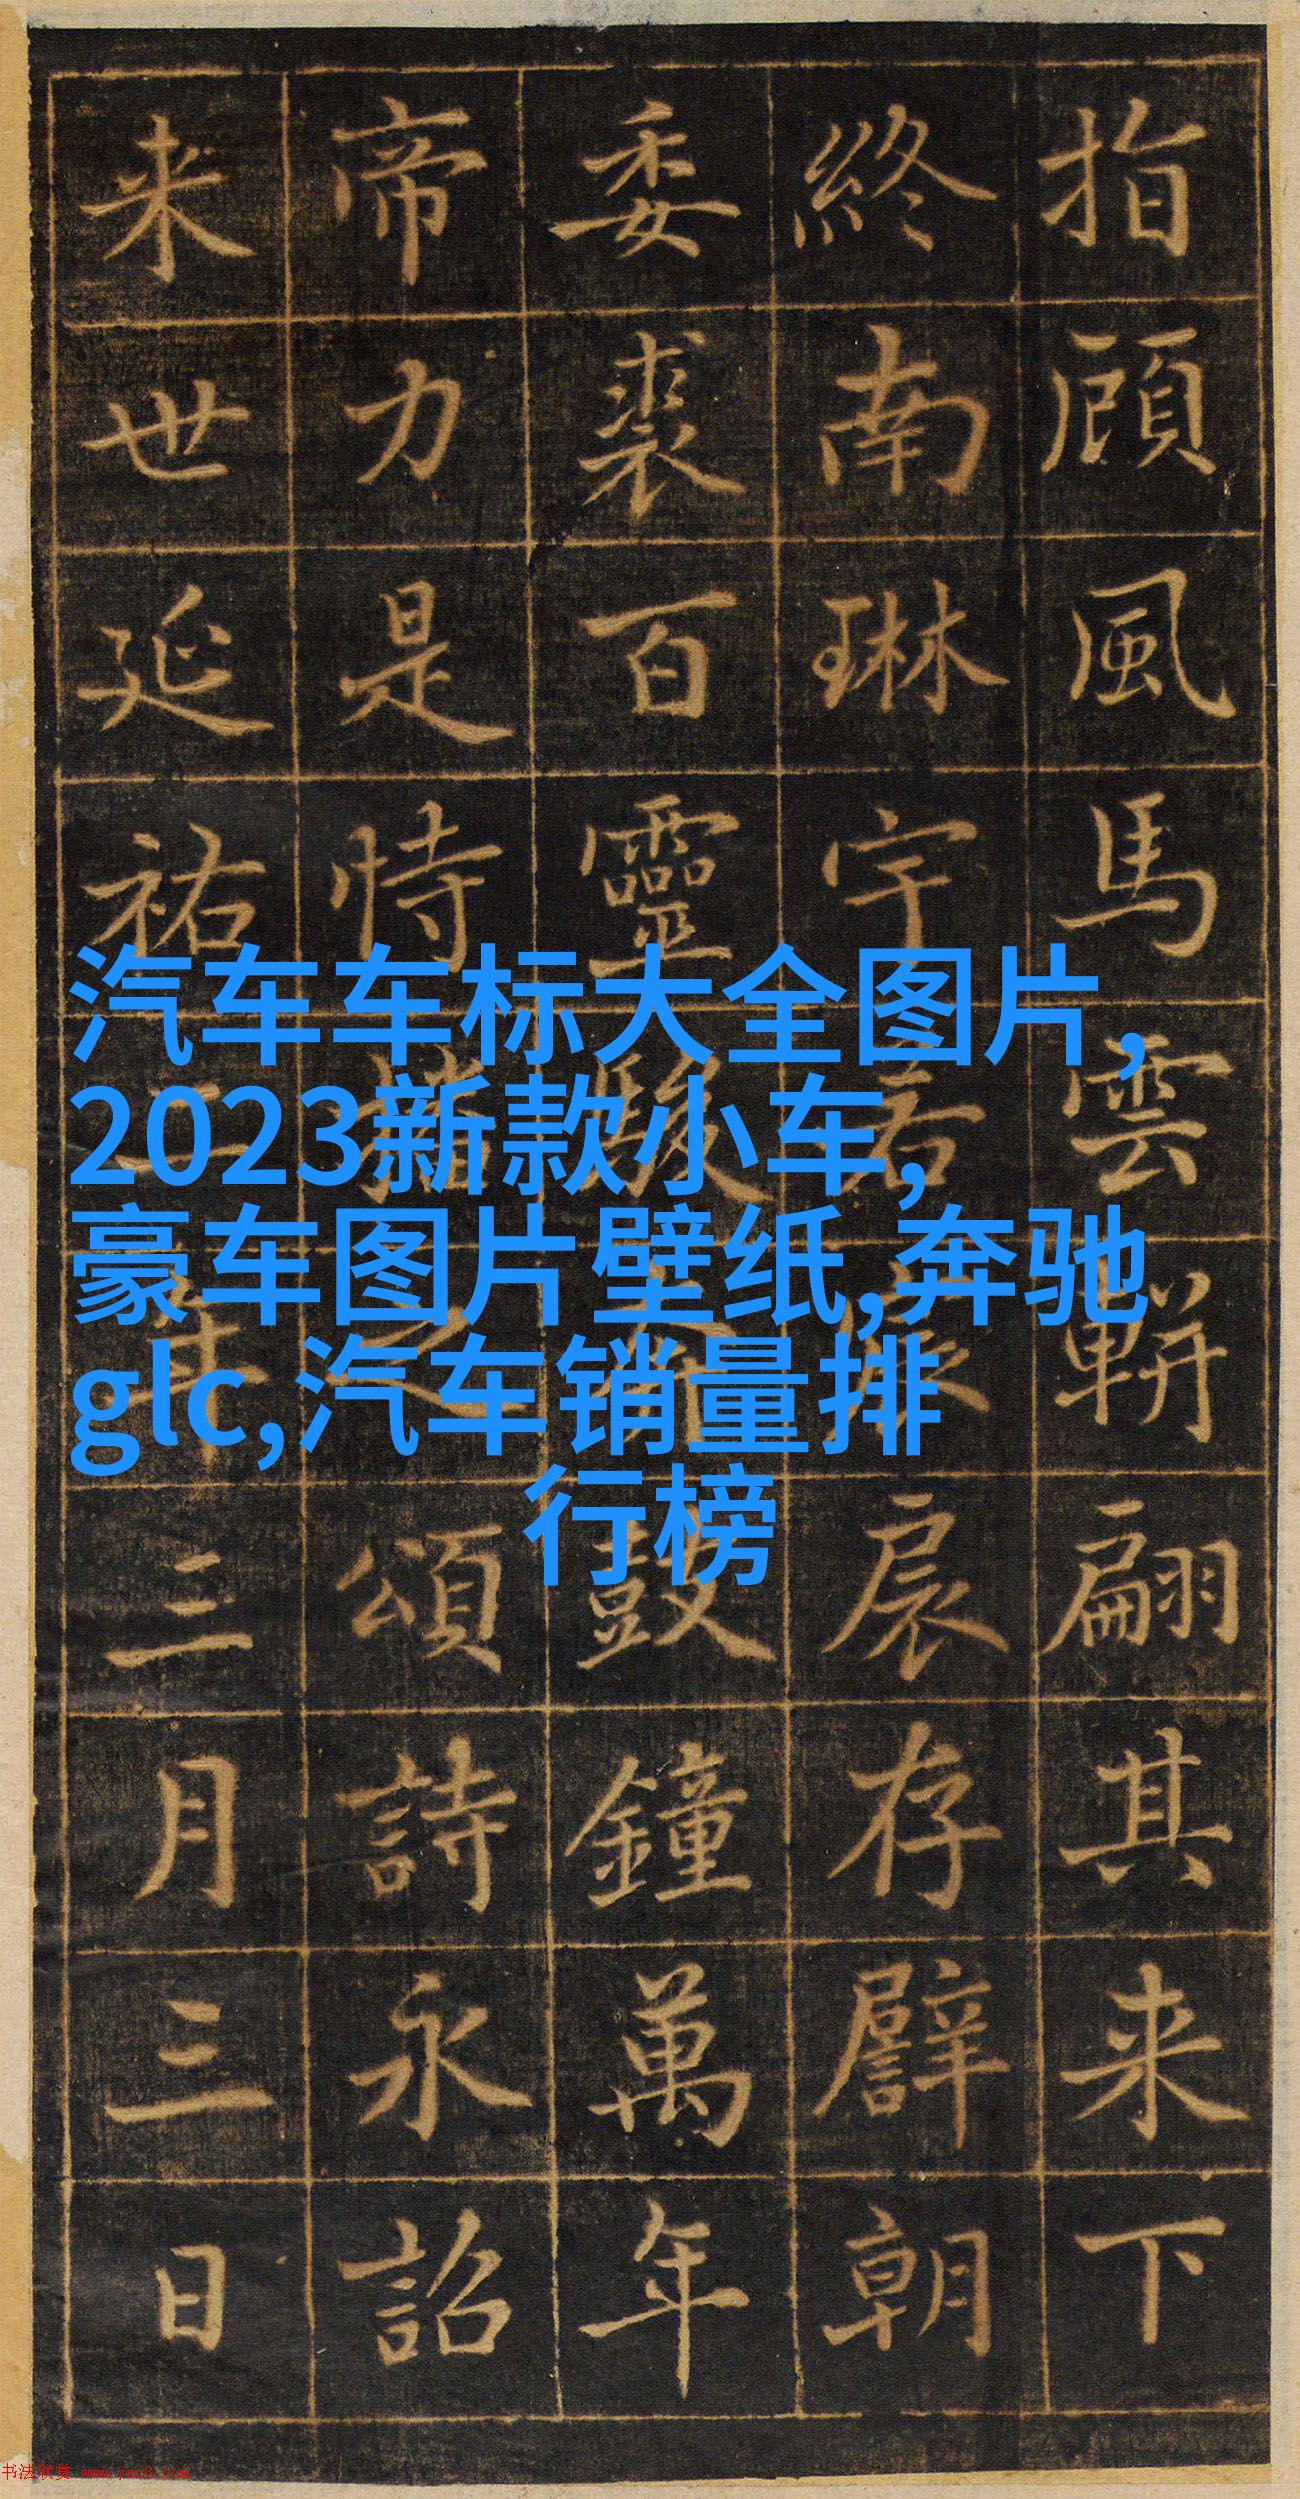 指顧風馬雲軿翩其来下
終南琳宇若扆存譬朝
委裘百靈駿奔鼓鐘萬年
帝力是恃播之頌詩永詔
来世延祐二年三月三日
汽车车标大全图片,
2023新款小车,
豪车图片壁纸,奔驰
glc,汽车销量排
行榜
书法欣赏 www.yac8.com